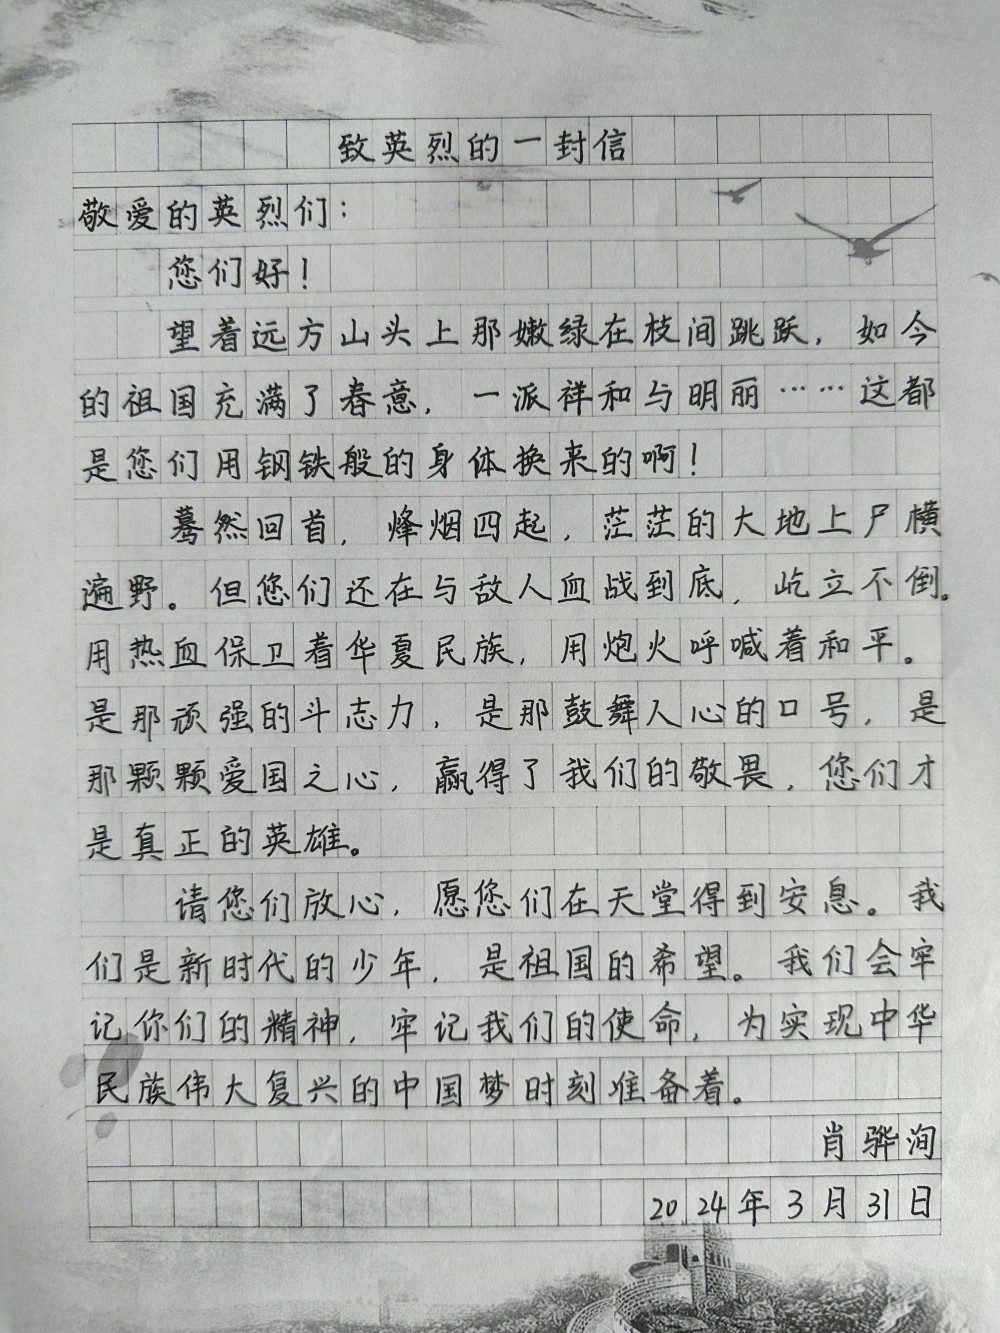 致英烈的一封信
敬爱的英烈们：
您们好！
望着远方山头上那嫩绿在枝间跳跃，如今
的祖国充满了春意，一派祥和与明丽……这都
是您们用钢铁般的身体换来的啊！
蓦然回首，烽烟四起，茫茫的大地上尸横
遍野。但您们还在与敌人血战到底，屹立不倒。
用热血保卫着华夏民族，用炮火呼喊着和平。
是那顽强的斗志力，是那鼓舞人心的口号，是
那颗颗爱国之心，赢得了我们的敬畏，您们才
是真正的英雄。
请您们放心，愿您们在天堂得到安息。我
们是新时代的少年，是祖国的希望。我们会牢
记你们的精神，牢记我们的使命，为实现中华
民族伟大复兴的中国梦时刻准备着。
肖骅洵
2024年3月31日